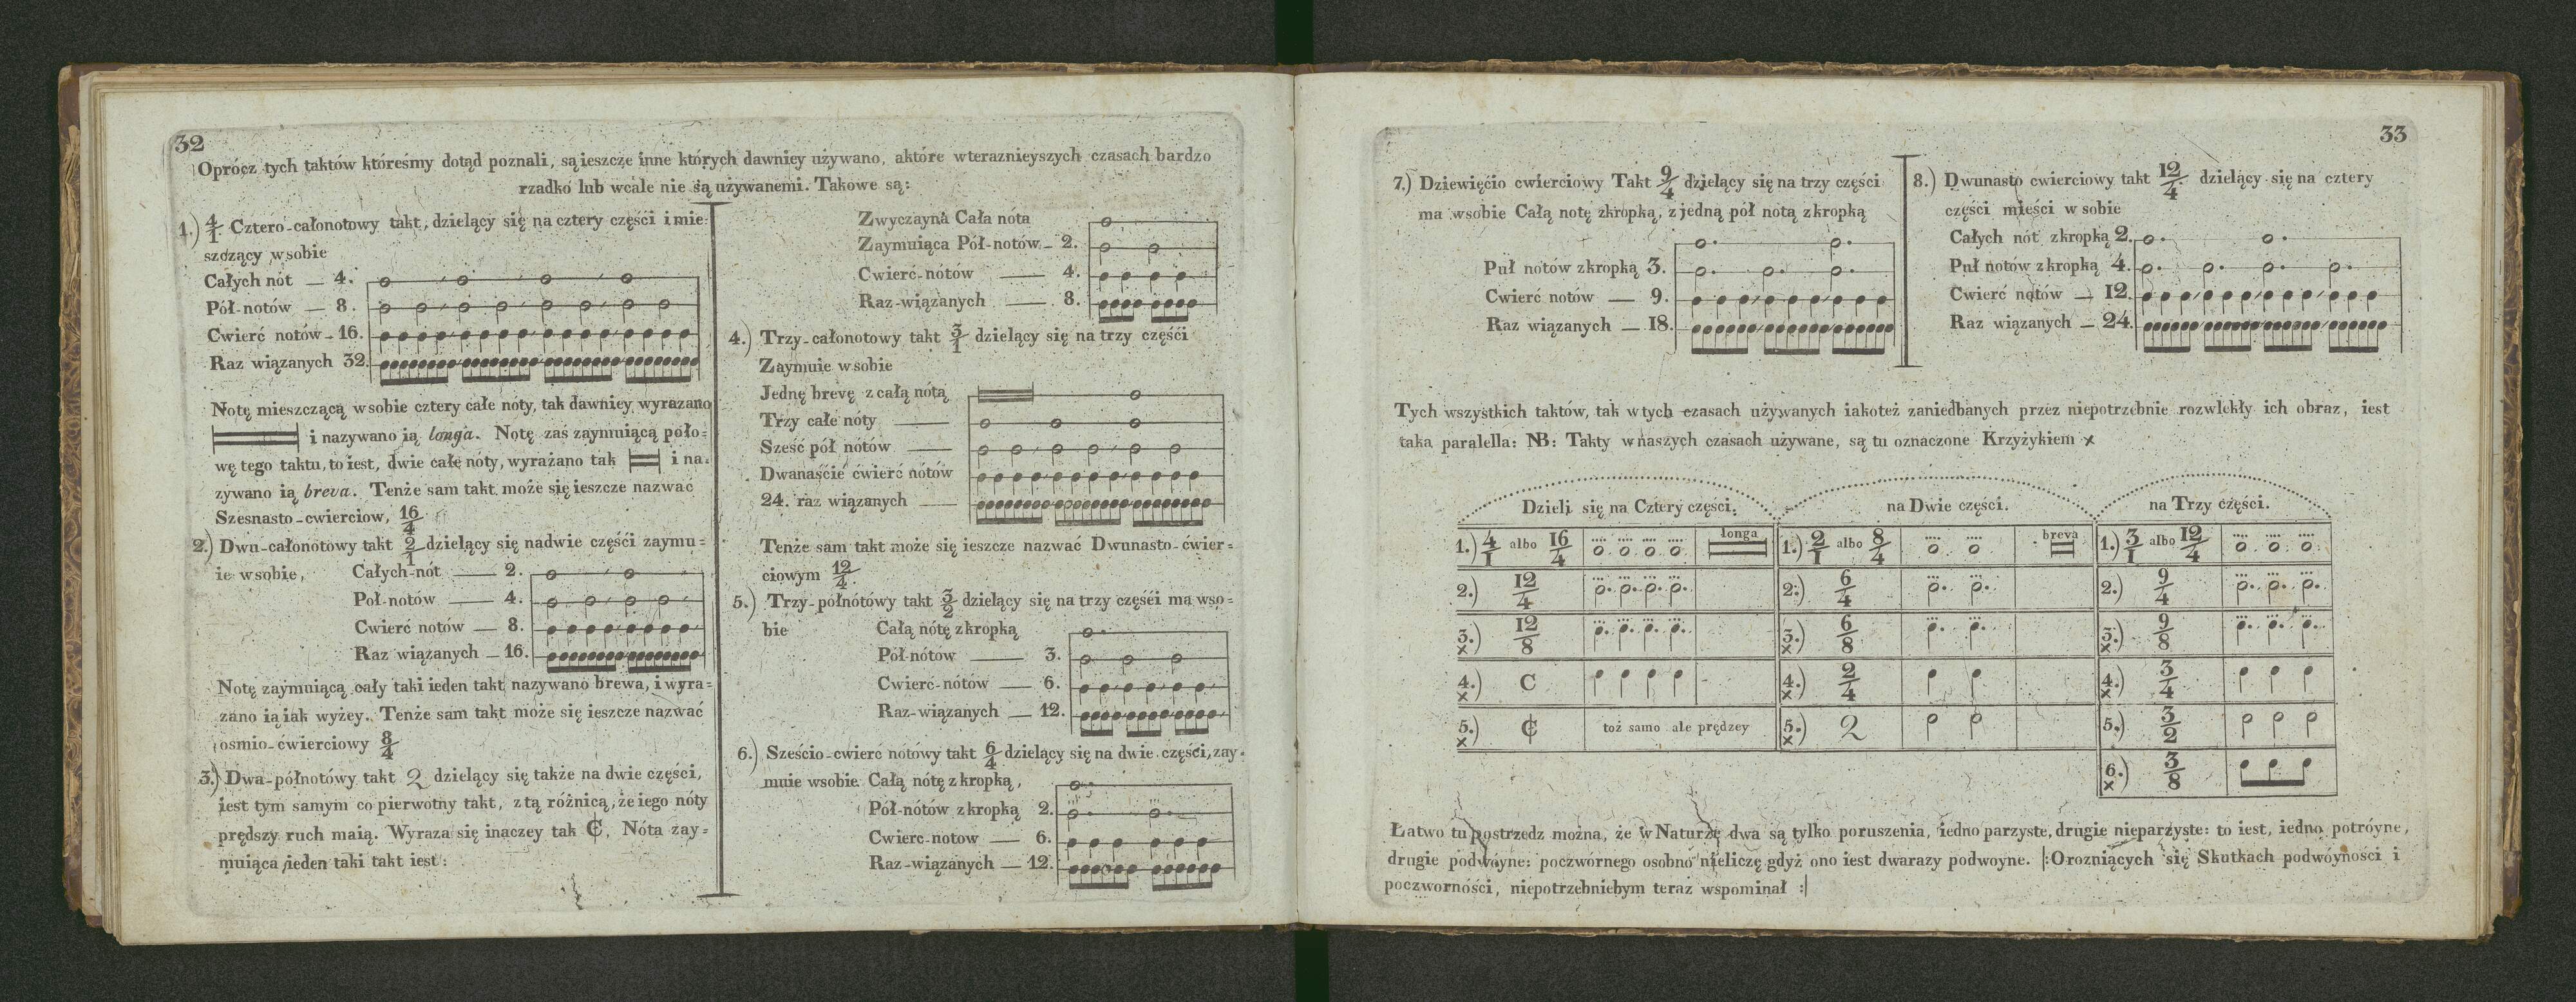 32
Oprócz tych taktów któreśmy dotąd poznali, są ieszcze inne których dawniey używano, aktóre wteraznieyszych czasach bardzo
rzadko lub wcale nie są używanemi. Takowe są:
1.) 4/1 Cztero-całonotowy takt, dzielący się na cztery części i mie:
szczący wsobie
Całych nót — 4.
Pół-notów — 8.
Cwierć notów - 16.
Raz wiązanych 32.
Notę mieszczącą wsobie cztery całe noty, tak dawniey wyrazano
i nazywano ią longa. Notę zaś zaymuiącą poło=
wę tego taktu, to iest, dwie całe nóty, wyrażano tak i na=
zywano ią breva. Tenże sam takt może się ieszcze nazwać
Szesnasto-cwierciow, 16/4
2.) Dwu-całonotowy takt 2/1 dzielący się nadwie części zaymu=
ie wsobie, Całych-nót — 2.
Poł-notów — 4.
Cwierć notów — 8.
Raz wiązanych — 16.
Notę zaymuiącą cały taki ieden takt nazywano brewa, i wyra=
zano ią iak wyżey. Tenże sam takt może się ieszcze nazwać
osmio-ćwierciowy 8/4
3.) Dwa-półnotówy takt 2 dzielący się także na dwie części,
iest tym samym co pierwotny takt, z tą różnicą, że iego nóty
prędszy ruch maią. Wyraza się inaczey tak ₵, Nóta zay=
muiąca ieden taki takt iest:
Zwyczayna Cała nóta
Zaymuiąca Pół-notów - 2.
Cwierć-nótów — 4.
Raz-wiązanych — 8.
4.) Trzy-całonotowy takt 3/1 dzielący się na trzy częśći
Zaymuie wsobie
Jednę brevę z całą nótą
Trzy całe nóty —
Sześć pół nótów —
Dwanaście ćwierć nótów
24. raz wiązanych —
Tenże sam takt może się ieszcze nazwać Dwunasto-ćwier=
ciowym 12/4.
5.) Trzy-półnótówy takt 3/2 dzielący się na trzy częśći ma wso=
bie Całą nótę zkropką
Pół-nótów — 3.
Cwierć-nótów — 6.
Raz-wiązanych — 12.
6.) Sześcio-cwierć notówy takt 6/4 dzielący się na dwie części, zay=
muie wsobie Całą nótę z kropką,
Pół-nótów zkropką 2.
Cwierc-notow — 6.
Raz-wiązanych — 12.
33
7.) Dziewięćio cwierciowy Takt 9/4 dzielący się na trzy części
ma wsobie Całą notę zkropką, z jedną pół notą zkropką
Puł notów zkropką 3.
Cwierć notów — 9.
Raz wiązanych — 18.
8.) Dwunasto cwierciowy takt 12/4. dzielący się na cztery
części mieści w sobie
Całych nót zkropką 2.
Puł notów zkropką 4.
Cwierć notów — 12.
Raz wiązanych — 24.
Tych wszystkich taktów, tak wtych czasach używanych iakoteż zaniedbanych przez niepotrzebnie rozwlekły ich obraz, iest
taka paralella: NB: Takty wnaszych czasach używane, są tu oznaczone Krzyżykiem ×
Dzieli się na Cztery części. na Dwie części. na Trzy części.
1.) 4/1 albo 16/4 longa 1.) 2/1 albo 8/4 breva 1.) 3/1 albo 12/4
2.) 12/4 2.) 6/4 2.) 9/4
3.) × 12/8 3.) × 6/8 3.) × 9/8
4.) × C 4.) × 2/4 4.) × 3/4
5.) × ₵ toż samo ale prędzey 5.) × 2 5.) 3/2
6.) × 3/8
Łatwo tu postrzedz można, że w Naturze dwa są tylko poruszenia, iedno parzyste, drugie nieparzyste: to iest, iedno potróyne,
drugie podwóyne: poczwórnego osobno nieliczę gdyż ono iest dwarazy podwoyne. |: Orozniących się Skutkach podwóyności i
poczworności, niepotrzebniebym teraz wspominał :|